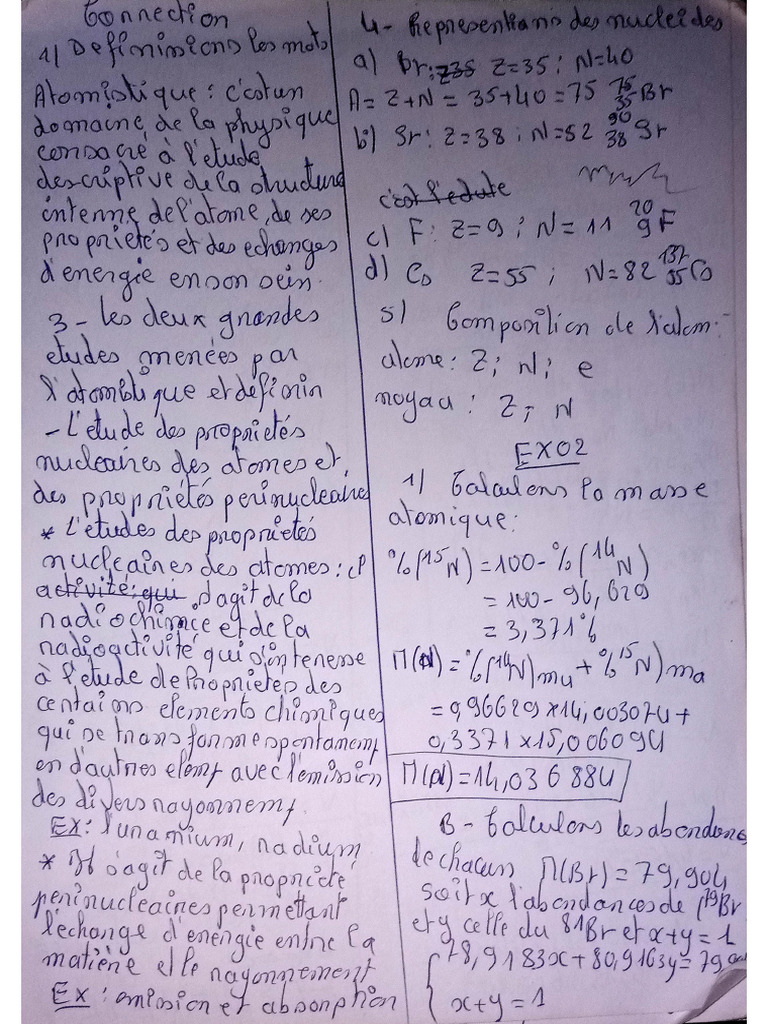 Correction
1/ Definissions les mots
Atomistique : c'est un
domaine de la physique
consacré à l'etude
descriptive de la structure
interne de l'atome, de ses
propriétés et des echanges
d'energie en son sein.
3 - les deux grandes
etudes menées par
l'atomistique et definir
- L'etude des proprietés
nucleaires des atomes et
des propriétés perinucleaires
* L'études des proprietés
nucleaires des atomes : il
activité : qui s'agit de la
radiochimie et de la
radioactivité qui s'interesse
à l'etude de Proprietés des
certains elements chimiques
qui se transforme spontament
en d'autres elemt avec l'emission
des divers rayonnemt.
EX : l'uranium, radium
* Il s'agit de la propriété
perinucleaires permettant
l'échange d'energie entre la
matière et le rayonnement
EX : emission et absorption
4 - Representions des nucleides
a) Br : Z35 Z=35 ; N=40
A = Z+N = 35+40 = 75 ⁷⁵₃₅Br
b) Sr : Z=38 ; N=52 ⁹⁰₃₈Sr
c'est l'edute
c) F : Z=9 ; N=11 ²⁰₉F
d) Cs Z=55 ; N=82 ¹³⁷₅₅Cs
5) Composition de l'atom :
atome : Z ; N ; e
noyau : Z ; N
EXO2
1) Calculons la masse
atomique :
%(¹⁵N) = 100 - %(¹⁴N)
= 100 - 96,629
= 3,371%
M(N) = %(¹⁴N)mu + %¹⁵N)mu
= 0,96629 x 14,00307u +
0,3371 x 15,00609u
M(N) = 14,03688u
B - Calculons les abondance
de chacun M(Br) = 79,904
soit x l'abondances de (⁷⁹Br
et y celle du ⁸¹Br et x+y = 1
{ 78,9183x + 80,9163y = 79,904
x+y = 1